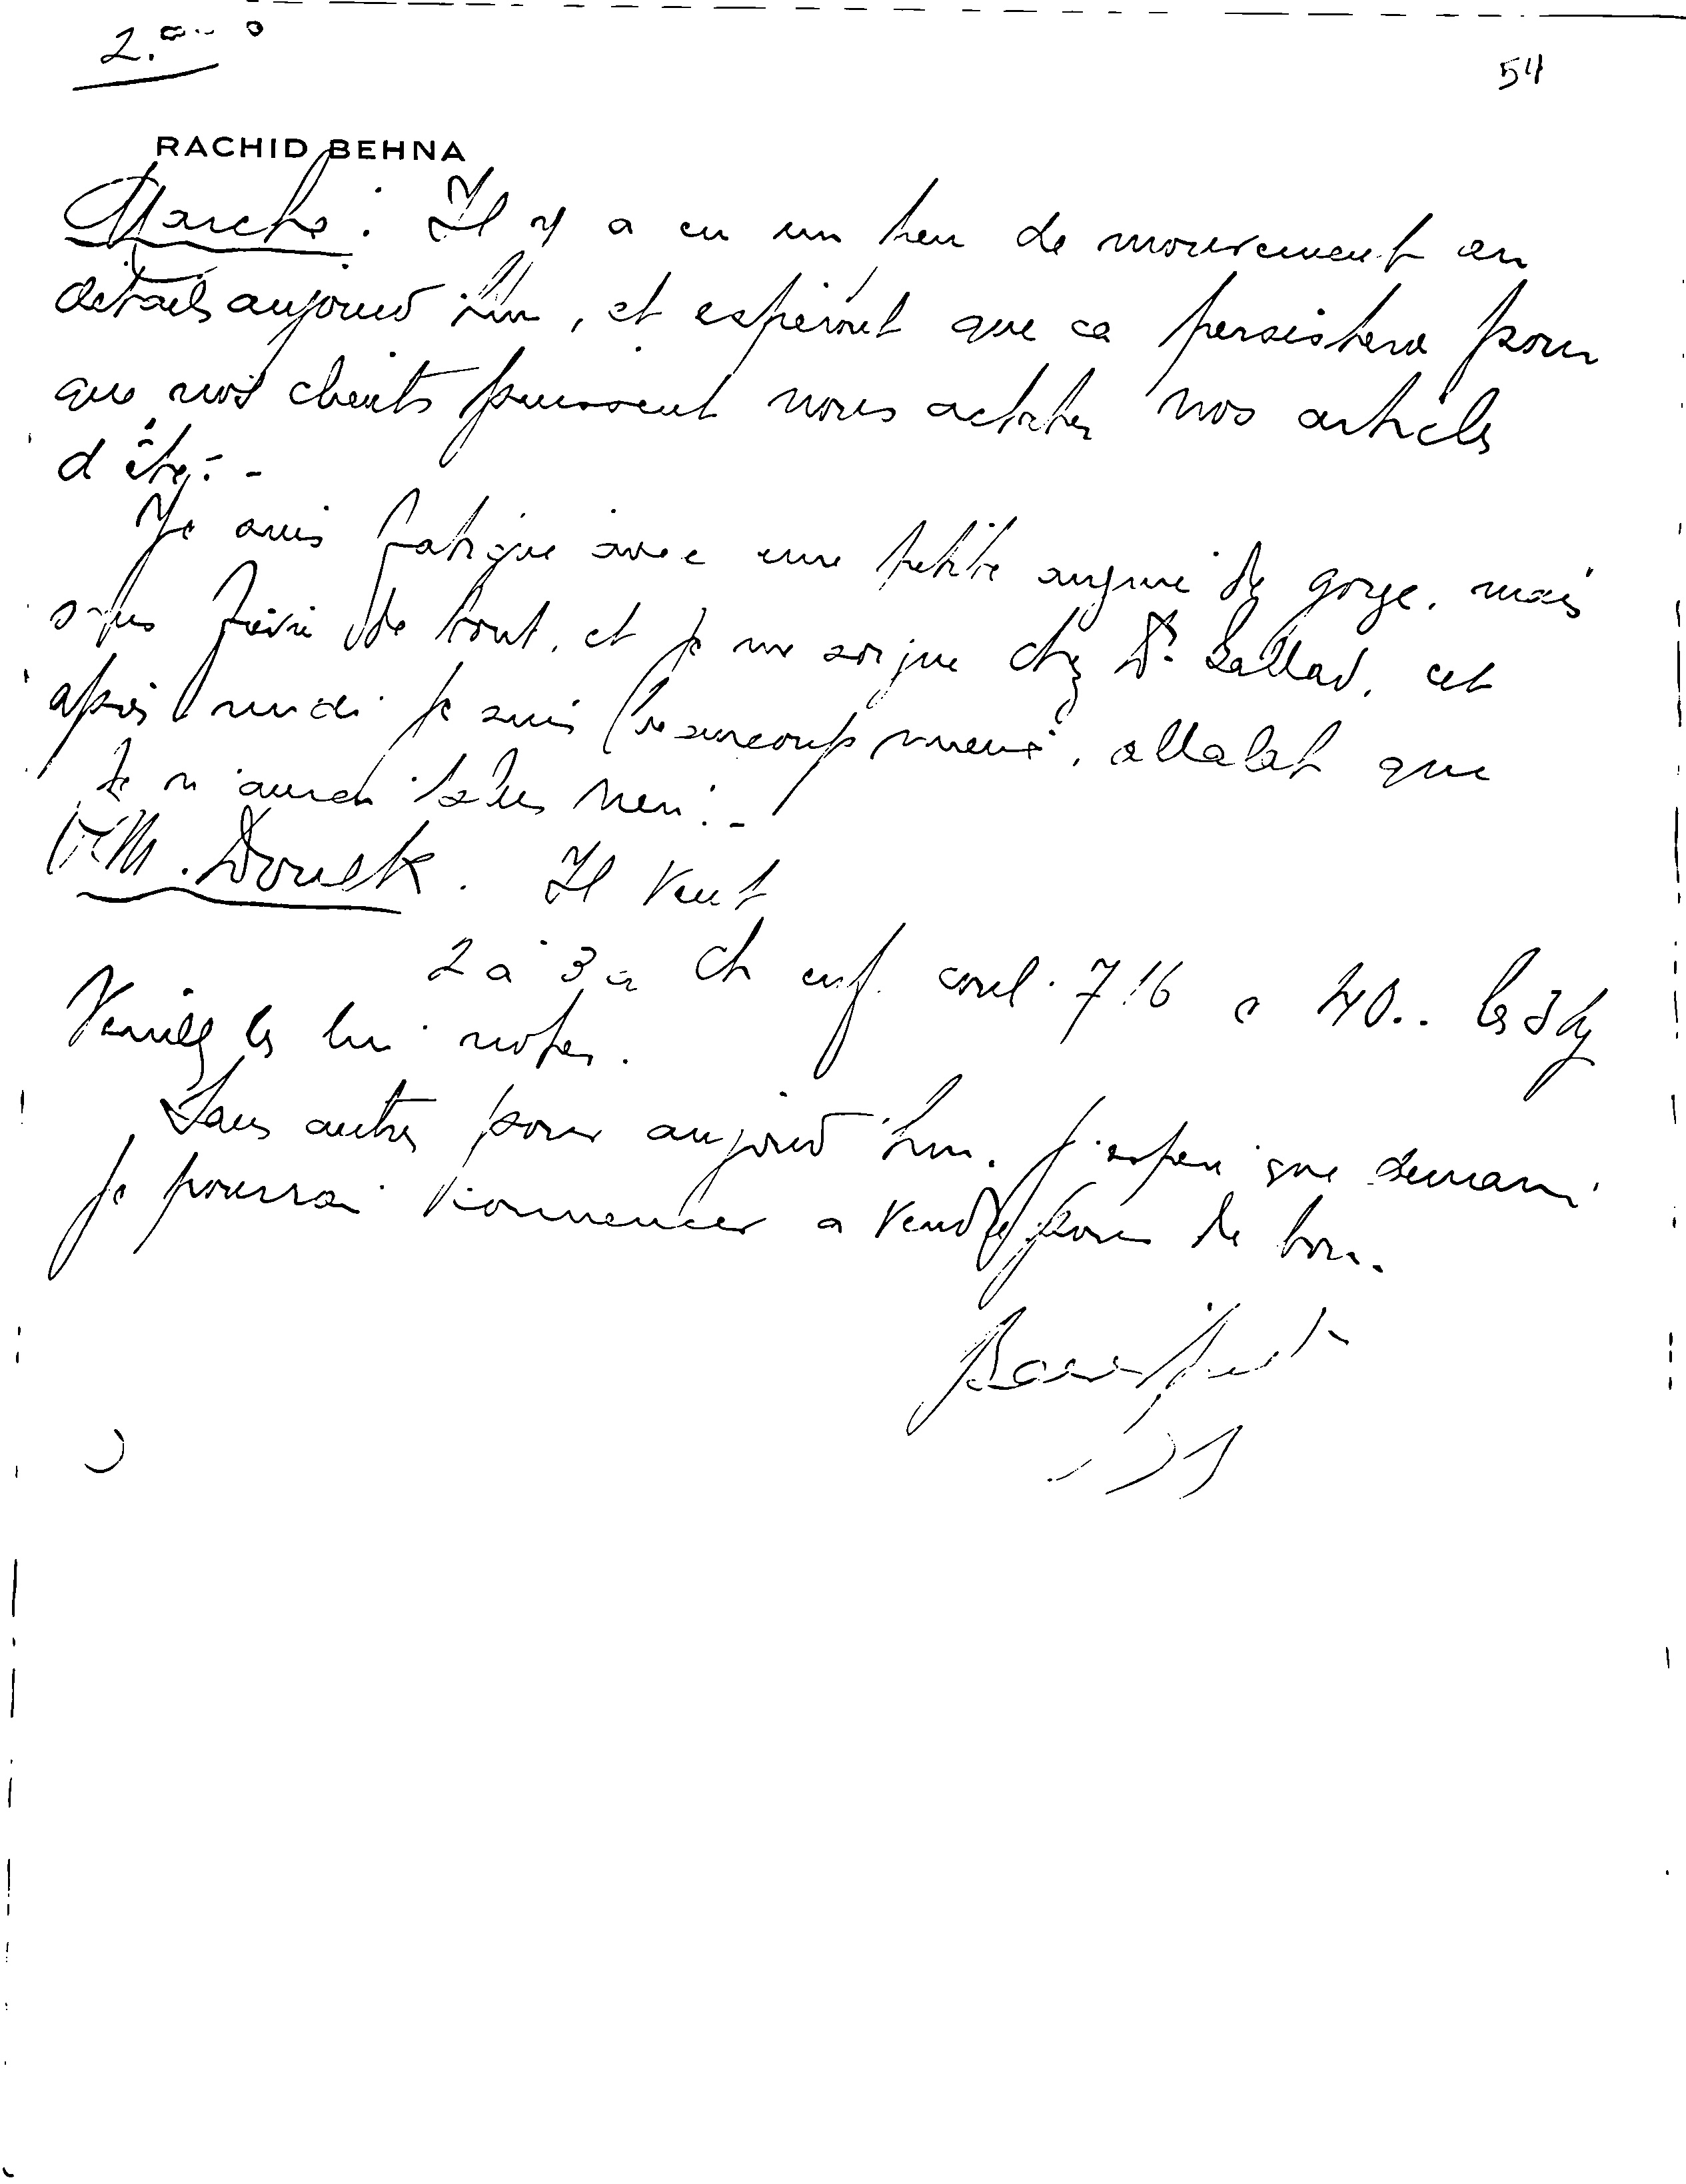 2.
54
RACHID BEHNA
Marché : Il y a eu un peu de mouvement au
détails aujourd'hui, et espéront que ca persistera pour
que nos clients puissent nous acheter nos articles
d'été.-
Je suis fatigué avec une petite angine de gorge, mais
sans fièvre de tout, et je me soigne chez Dr. Sallad, cet
après midi je suis beaucoup mieux, allalah que
je n'aurai plus rien.-
M. Douek. Il veut
2 à 3 Ch enf. coul. 716 a 40.. les 3 dz
Veuillez les lui noter.
Sans autres pour aujourd'hui. J'espère que demain
je pourrai commencer a vendre pour de bon.